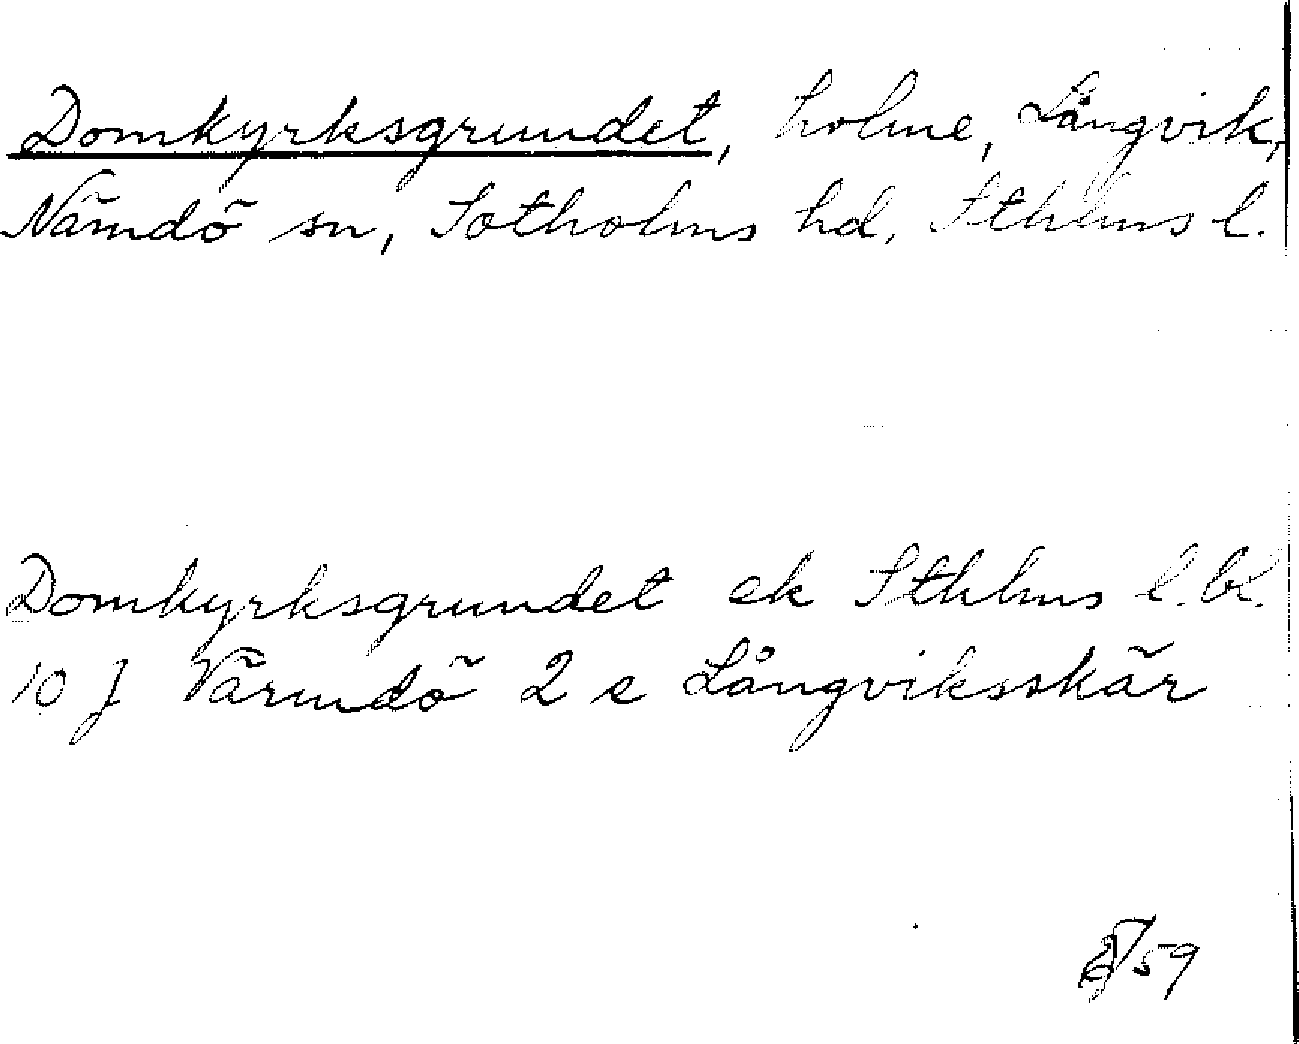 Domkyrksgrundet, holme, Långvik,
Nämdö sn, Sotholms hd, Sthlms l.
Domkyrksgrundet ek Sthlms l. bl.
10 J Värmdö 2 e Långviksskär
59